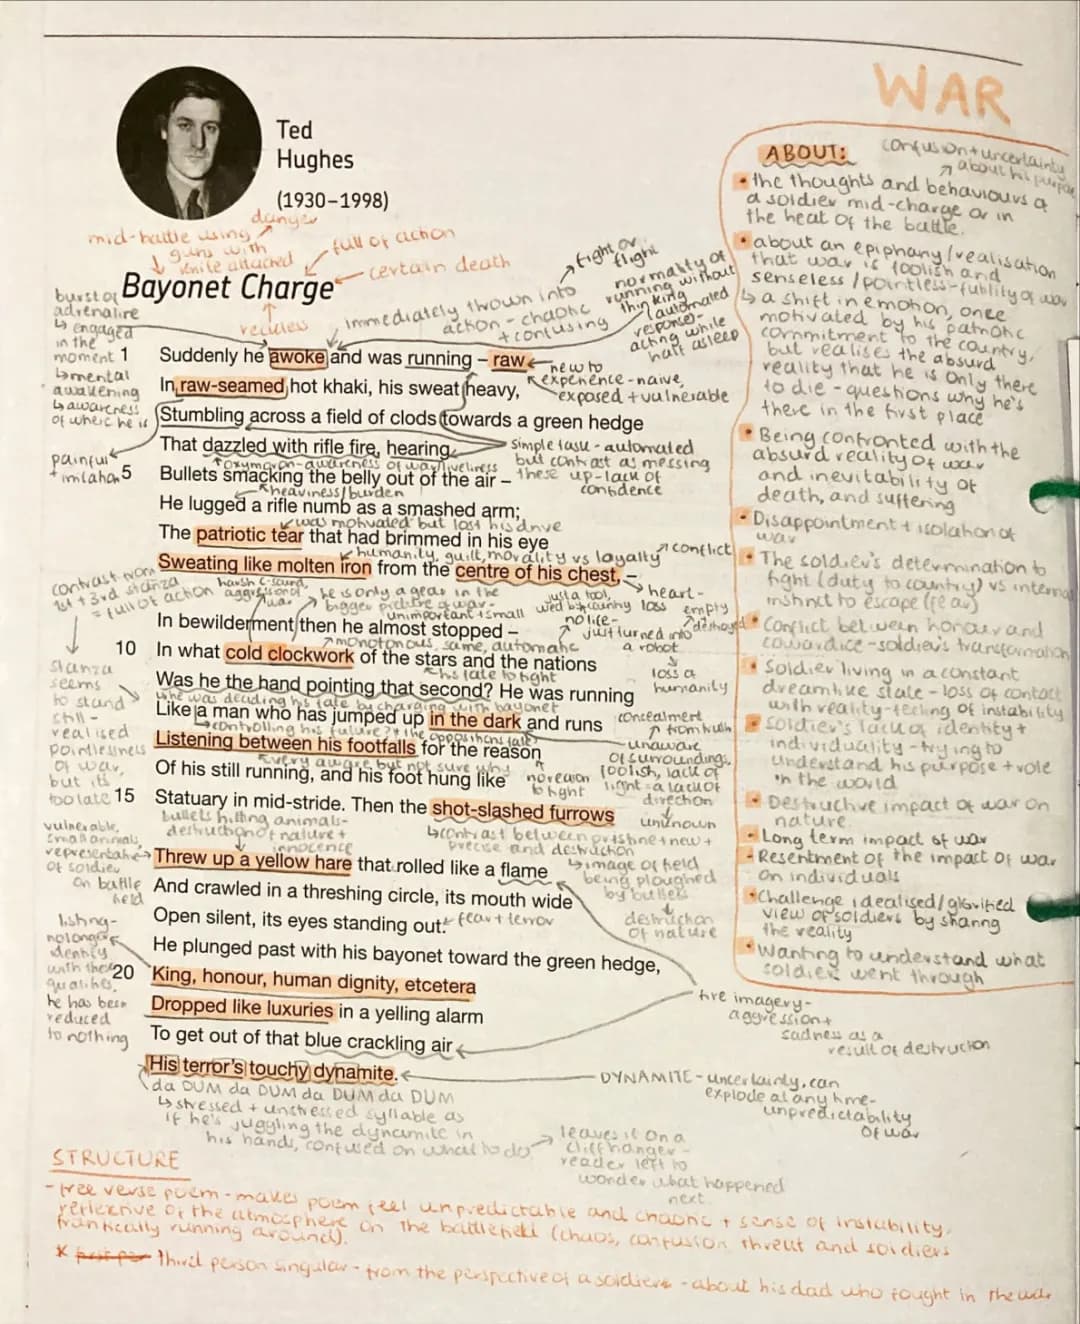 WAR
Ted
Hughes
(1930–1998)
danger
mid-battle using
guns with
knife attached
full of action
certain death
Bayonet Charge
reckless
burst of
adrenaline
↳ engaged
in the
moment
↳ mental
awakening
↳ awareness
of where he is
immediately thrown into
action - chaotic
+ confusing
fight or
flight
normality of
running without
thinking
(automated
response) -
acting while
half asleep
1 Suddenly he awoke and was running – raw
new to
experience - naive,
exposed + vulnerable
In raw-seamed hot khaki, his sweat heavy,
Stumbling across a field of clods towards a green hedge
That dazzled with rifle fire, hearing
simple task - automated
but contrast as messing
these up - lack of
confidence
painful
+ imitation
oxymoron - awareness of war/liveliness
5 Bullets smacking the belly out of the air –
heaviness/burden
He lugged a rifle numb as a smashed arm;
was motivated but lost his drive
The patriotic tear that had brimmed in his eye
humanity, guilt, morality vs loyalty
conflict
Sweating like molten iron from the centre of his chest, –
contrast from
1st + 3rd stanza
= full of action
harsh c-sound,
aggression of
war
he is only a gear in the
bigger picture of war -
unimportant + small
just a tool,
used by country
heart -
loss
empty
destroyed
In bewilderment then he almost stopped –
no life -
just turned into
a robot
monotonous, same, automatic
10 In what cold clockwork of the stars and the nations
his fate to fight
loss of
humanity
Was he the hand pointing that second? He was running
he was deciding his fate by charging with bayonet
Like a man who has jumped up in the dark and runs
concealment
from truth
controlling his future? + the oppositions fate
Listening between his footfalls for the reason
unaware
of surroundings,
foolish, lack of
light - a lack of
direction
unknown
very aware but not sure why
Of his still running, and his foot hung like
no reason
to fight
15 Statuary in mid-stride. Then the shot-slashed furrows
stanza
seems
to stand
still -
realised
pointlessness
of war,
but its
too late
bullets hitting animals -
destruction of nature +
innocence
↳ contrast between pristine + new +
precise and destruction
↳ image of field
being ploughed
by bullets
↓
destruction
of nature
vulnerable,
small animals,
representative
of soldier
on battle
field
Threw up a yellow hare that rolled like a flame
And crawled in a threshing circle, its mouth wide
Open silent, its eyes standing out.
fear + terror
He plunged past with his bayonet toward the green hedge,
listing -
no longer
identify
with these
qualities.
he has been
reduced
to nothing
20 King, honour, human dignity, etcetera
Dropped like luxuries in a yelling alarm
To get out of that blue crackling air
His terror's touchy dynamite.
fire imagery -
aggression +
sadness as a
result of destruction
DYNAMITE - uncertainty, can
explode at any time -
unpredictability
of war
da DUM da DUM da DUM da DUM
↳ stressed + unstressed syllable as
if he's juggling the dynamite in
his hands, confused on what to do
leaves it on a
cliffhanger -
reader left to
wonder what happened
next.
ABOUT:
confusion + uncertainty
about his purpose
• the thoughts and behaviours of
a soldier mid-charge or in
the heat of the battle.
• about an epiphany/realisation
that war is foolish and
senseless/pointless - futility of war
↳ a shift in emotion, once
motivated by his patriotic
commitment to the country,
but realises the absurd
reality that he is only there
to die - questions why he's
there in the first place
• Being confronted with the
absurd reality of war
and inevitability of
death, and suffering
• Disappointment + isolation of
war
• The soldier's determination to
fight (duty to country) vs internal
instinct to escape (fear)
• Conflict between honour and
cowardice - soldier's transformation
• Soldier living in a constant
dreamlike state - loss of contact
with reality - feeling of instability
• Soldier's lack of identity +
individuality - trying to
understand his purpose + role
in the world
• Destructive impact of war on
nature
• Long term impact of war
- Resentment of the impact of war
on individuals
• Challenge idealised/glorified
view of soldiers by sharing
the reality
• Wanting to understand what
soldiers went through
STRUCTURE
- free verse poem - makes poem feel unpredictable and chaotic + sense of instability,
reflective of the atmosphere on the battlefield (chaos, confusion, threat and soldiers
frantically running around).
* first per third person singular - from the perspective of a soldiers - about his dad who fought in the war